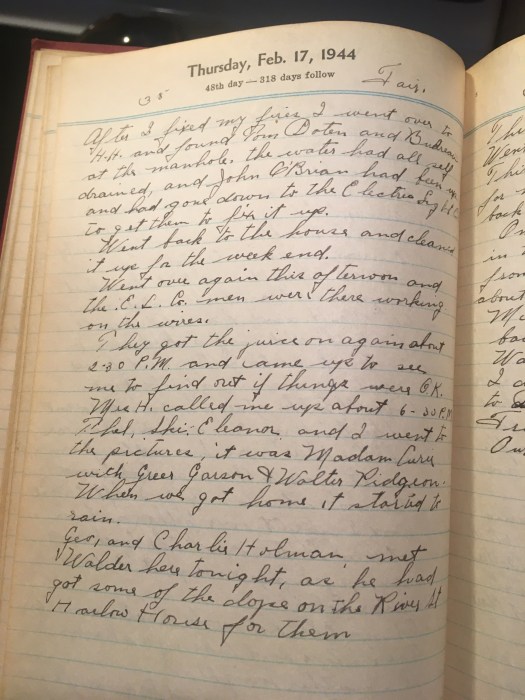 Thursday, Feb. 17, 1944
48th day — 318 days follow
38 Fair.
After I fixed my fires I went over to
H.H. and found Tom Doten and
at the manhole. the water had all self
drained, and John O'Brian had been up
and had gone down to the Electric Lgt Co
to get them to fix it up.
Went back to the house and cleaned
it up for the week end.
Went over again this afternoon and
the E. L. Co. men were there working
on the wires.
They got the juice on again about
2-30 P.M. and came up to see
me to find out if things were O.K.
Mrs H. called me up about 6-30 P.M
Ethel, Ski, Eleanor, and I went to
the pictures, it was Madam Curie
with Greer Garson & Walter Pidgeon.
When we got home it started to
rain.
Geo, and Charlie Holman met
Walder here tonight, as he had
got some of the dope on the River St
Harlow House for them
The
Wen
This
for
back
On
in
from
about
Mr
ba
Wa
I
to
Fr
Ou